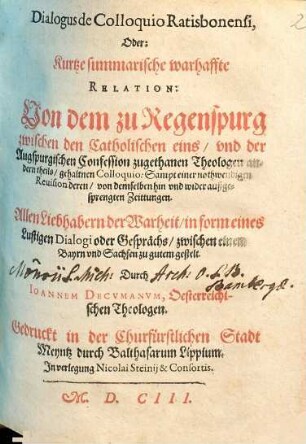 Dialogus de Colloquio Ratisbonensi,
Oder:
Kurtze summarische warhaffte
RELATION:
Von dem zu Regenspurg
zwischen den Catholischen eins / vnd der
Augspurgischen Confession zugethanen Theologen an-
dern theils / gehaltnen Colloquio: Sampt einer nothwendigen
Reuision deren / von demselben hin vnd wider außge-
sprengten Zeittungen.
Allen Liebhabern der Warheit / in form eines
Lustigen Dialogi oder Gesprächs / zwischen einem
Bayrn vnd Sachsen zu gutem gestelt.
Durch
IOANNEM DECVMANVM, Oesterreichi-
schen Theologen.
Gedruckt in der Churfürstlichen Stadt
Meyntz durch Balthasarum Lippium.
In verlegung Nicolai Steinij & Consortis.
M. D. CIII.